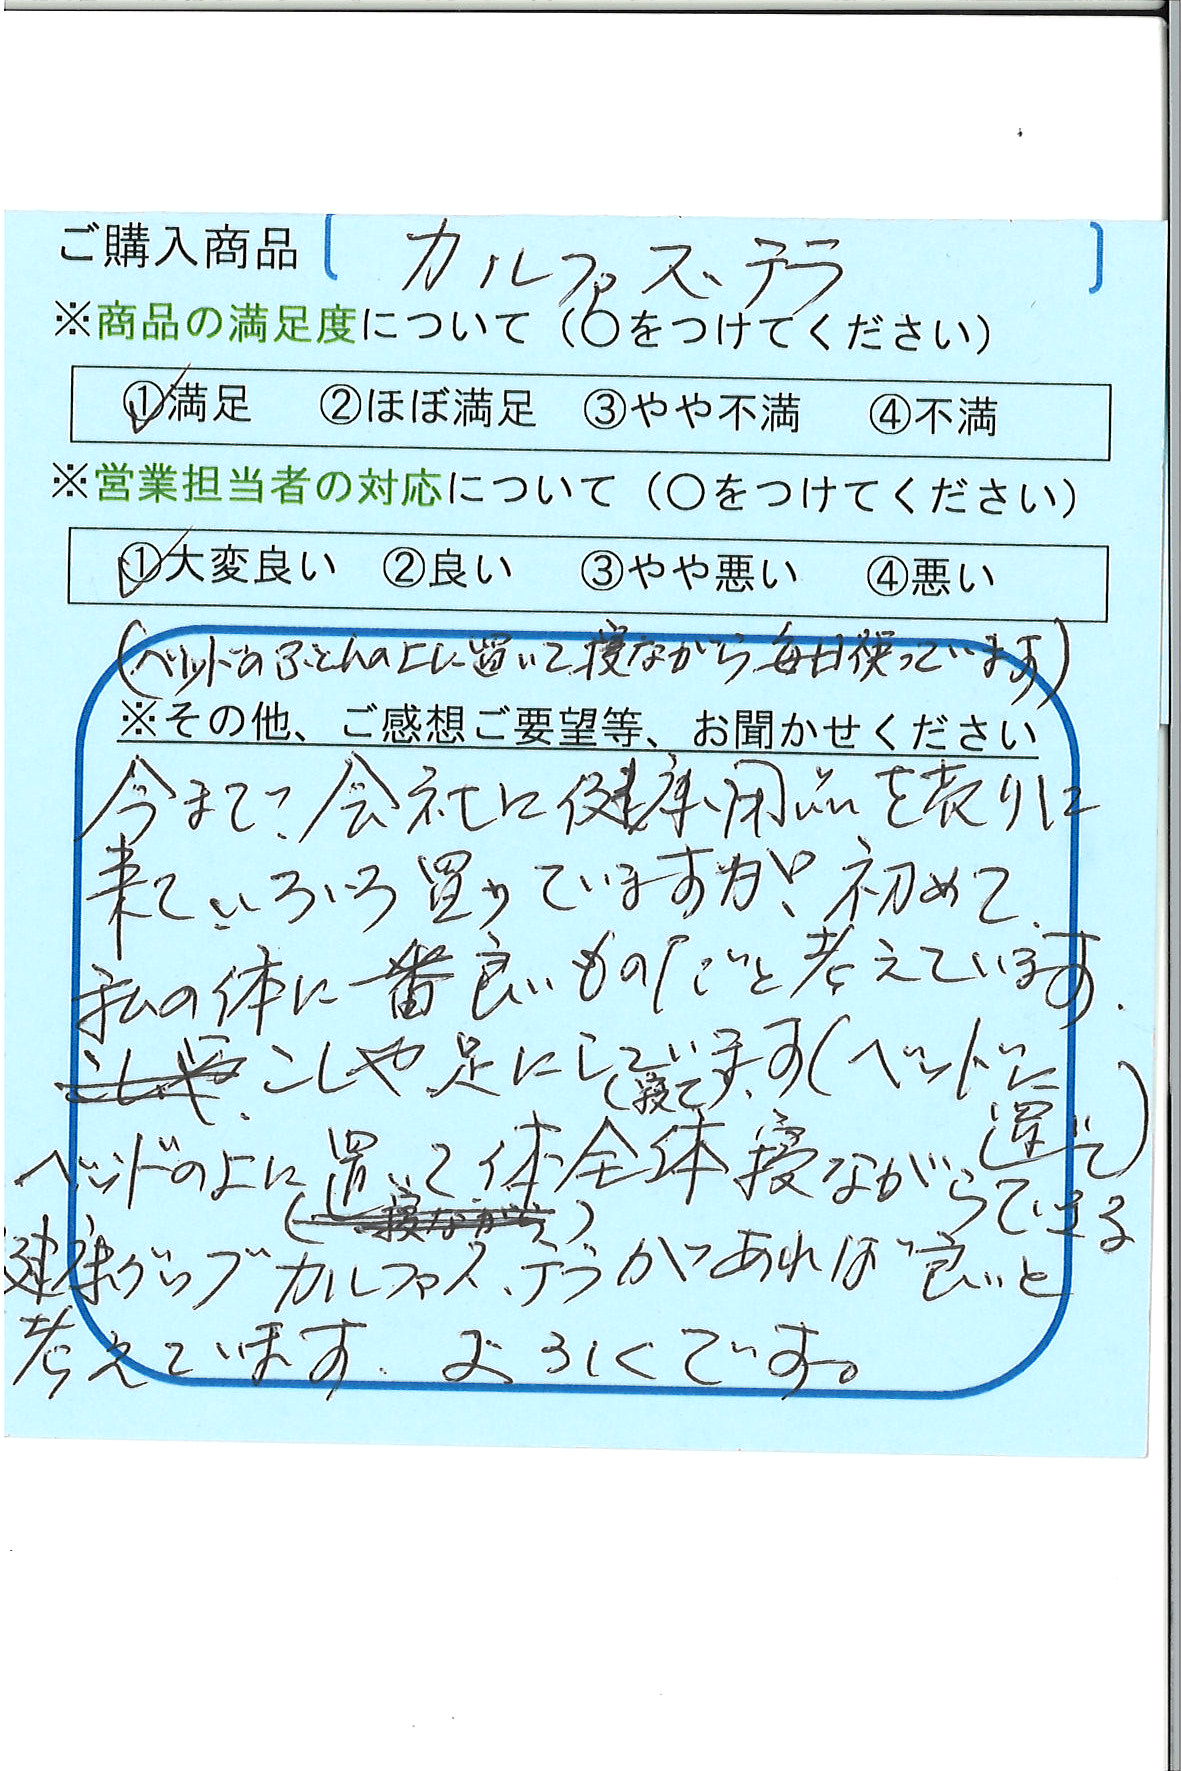 ご購入商品 [ カルファス、テラ ]
※商品の満足度について（○をつけてください）
①満足 ②ほぼ満足 ③やや不満 ④不満
※営業担当者の対応について（○をつけてください）
①大変良い ②良い ③やや悪い ④悪い
(ベットのふとんの上に置いて、寝ながら毎日使っています)
※その他、ご感想ご要望等、お聞かせください
今まで、会社に健康用品を売りに
来ていろいろ買っていますが、初めて
私の体に一番良いものだと考えています.
こしや足にしています(ベットに
(寝て) 置いて)
ベッドの上に置いて体全体寝ながらできる
(寝ながら)
健康グッブ カルファス、テラがあれば良いと
考えています. よろしくです。